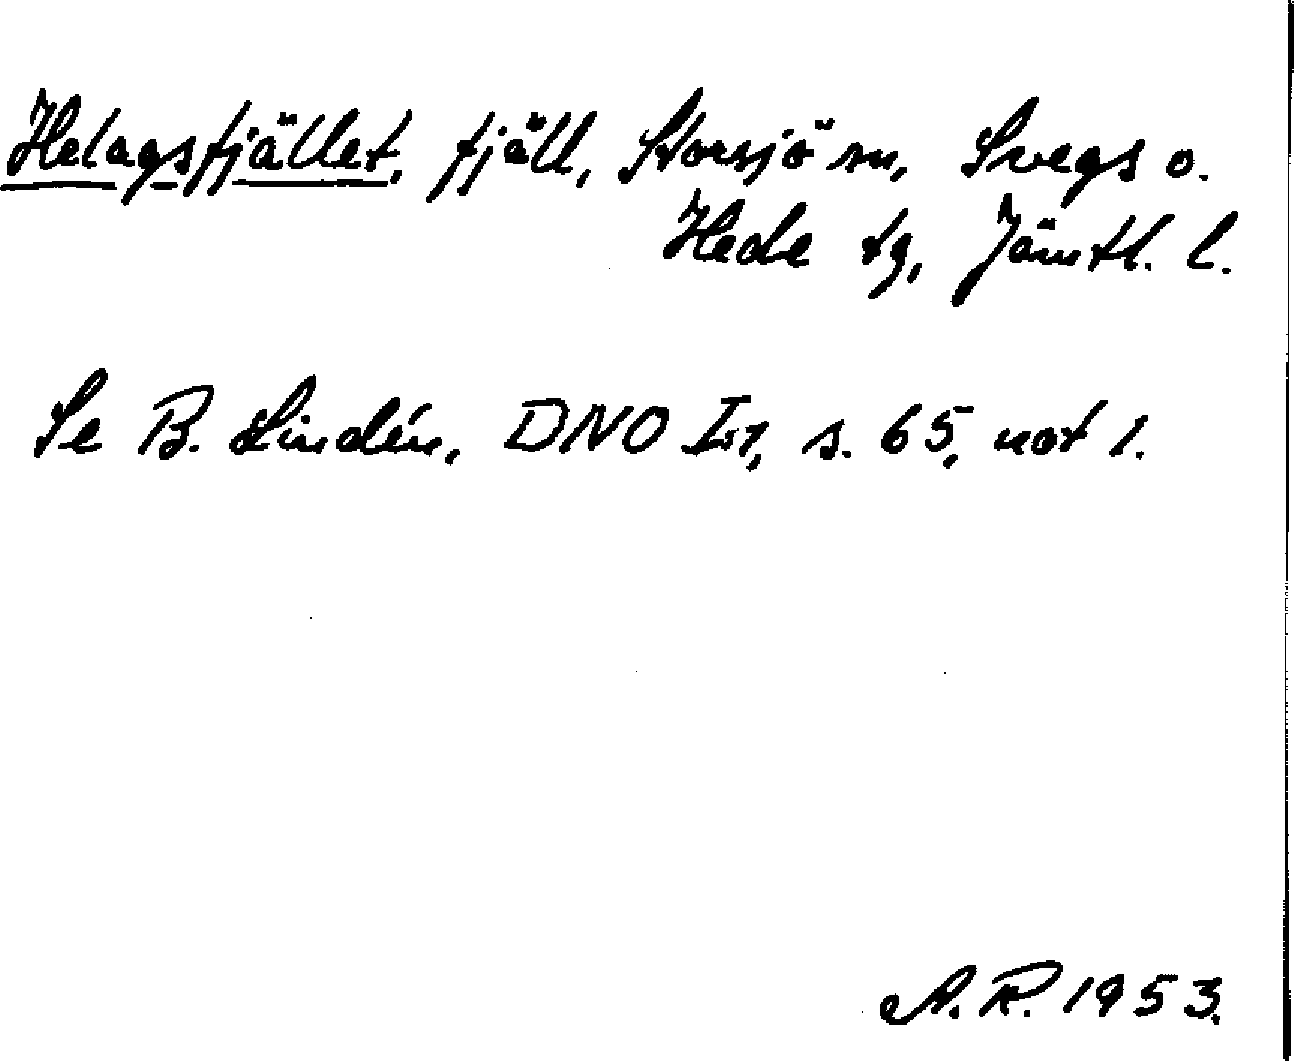 Helagsfjället, fjäll, Storsjö sn, Svegs o.
Hede tg, Jämtl. l.
Se B. Lindén, DNO I:1, s. 65, not 1.
A. R. 1953.